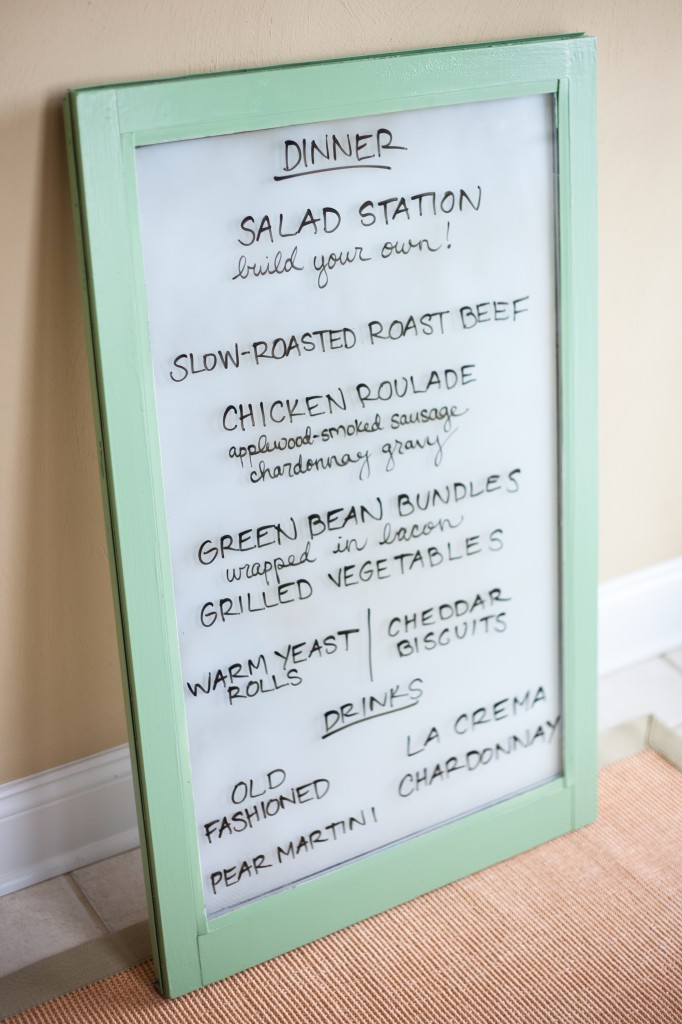 DINNER
SALAD STATION
build your own!
SLOW-ROASTED ROAST BEEF
CHICKEN ROULADE
applewood-smoked sausage
chardonnay gravy
GREEN BEAN BUNDLES
wrapped in bacon
GRILLED VEGETABLES
WARM YEAST
ROLLS
CHEDDAR
BISCUITS
DRINKS
OLD
FASHIONED
PEAR MARTINI
LA CREMA
CHARDONNAY